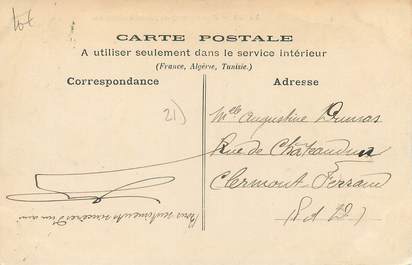 tot
CARTE POSTALE
A utiliser seulement dans le service intérieur
(France, Algérie, Tunisie.)
Correspondance
Adresse
21)
Mlle Augustine Dumas
Rue de Châteaudun
Clermont-Ferrand
(P d D)
sentiments sincères d'un ami